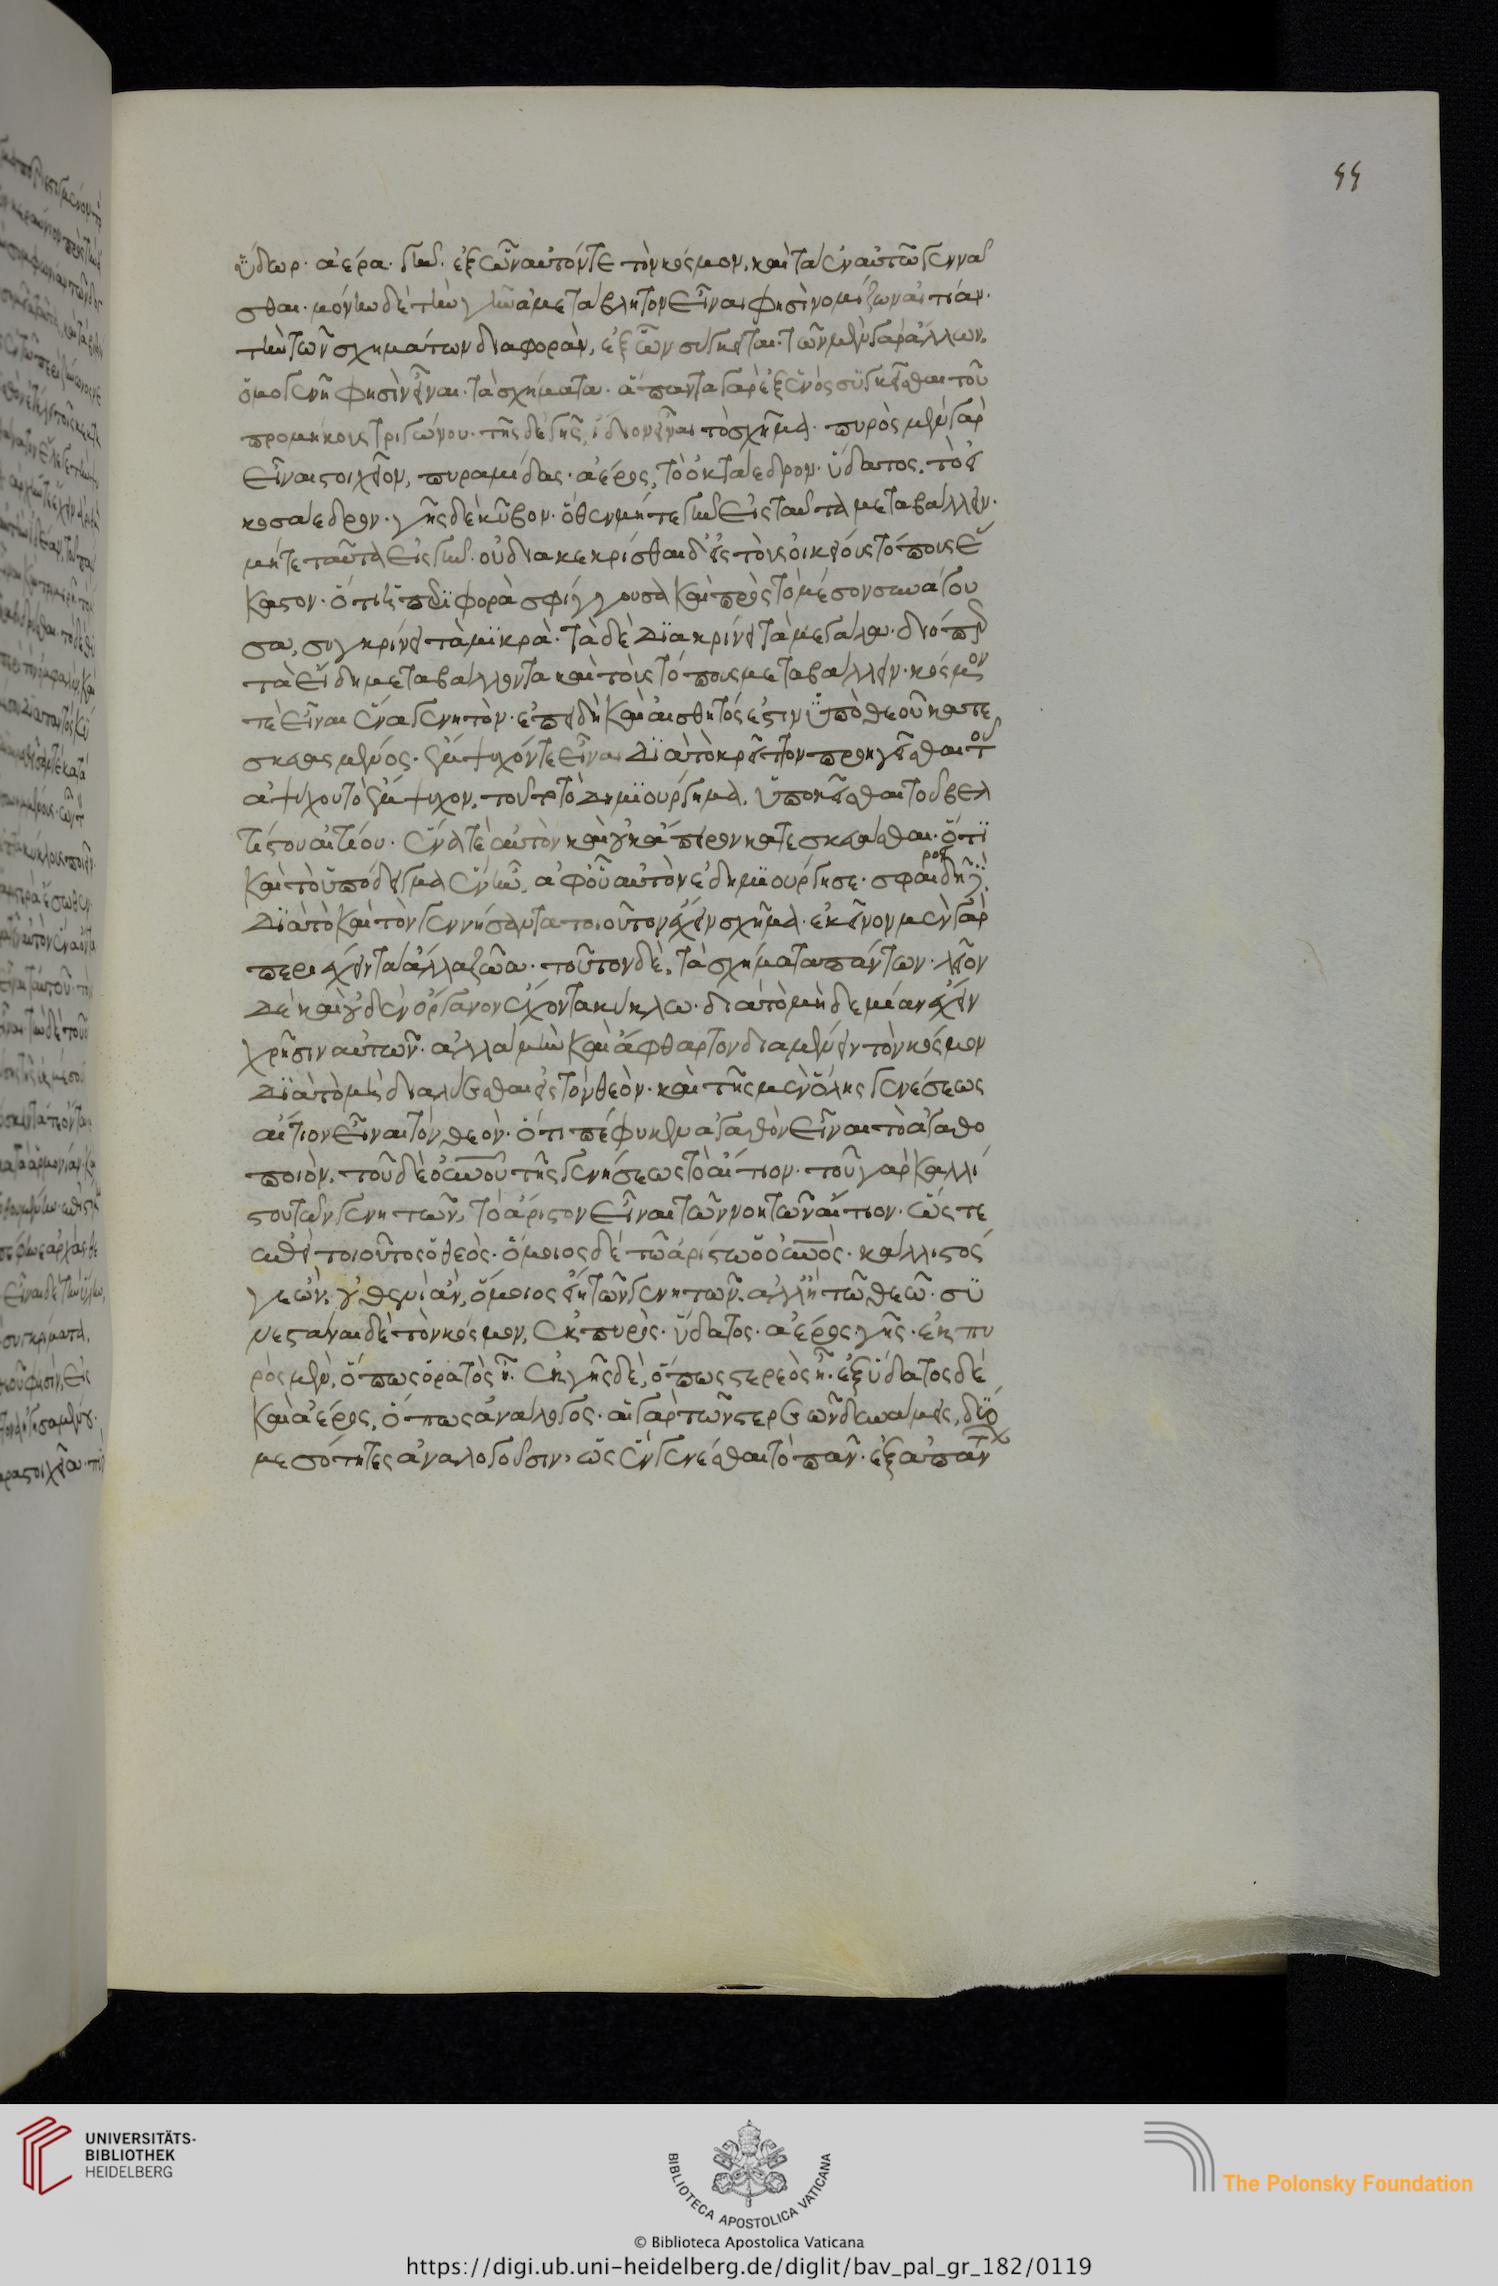 ὕδωρ· ἀέρα· γῆν· ἐξ ὧν αὐτόν τε τὸν κόσμον, καὶ τὰ ἐν αὐτῷ γεννᾶ
σθαι· μόνην δὲ τὴν γῆν ἀμετάβλητον εἶναι φησὶ νομίζων αἰτίαν·
τὴν τῶν σχημάτων διαφορὰν, ἐξ ὧν σύγκειται· τῶν μὲν γὰρ ἄλλων,
ὁμογενῆ φησὶν εἶναι· τὰ σχήματα· ἅπαντα γὰρ ἐξ ἑνὸς συγκεῖσθαι τοῦ
προμήκους τριγώνου· τῆς δὲ γῆς, ἴδιον εἶναι τὸ σχῆμα· πυρὸς μὲν γὰρ
εἶναι στοιχεῖον, πυραμίδας· ἀέρος, τὸ ὀκτάεδρον· ὕδατος, τὸ εἰ
κοσάεδρον· γῆς δὲ κύβον· ὅθεν μήτε γῆν εἰς ταῦτα μεταβάλλειν·
μήτε ταῦτα εἰς γῆν· οὐ διακεκρίσθαι δ' εἰς τοὺς οἰκείους τόπους ἕ
καστον· ὅτι ἡ περιφορὰ σφίγγουσα καὶ πρὸς τὸ μέσον συνάγου
σα, συγκρίνει τὰ μικρὰ· τὰ δὲ διακρίνει τὰ μεγάλα· διόπερ
τὰ εἴδη μεταβάλλοντα καὶ τοὺς τόπους μεταβάλλειν· κόσμον
τὲ εἶναι ἕνα γενητὸν· ἐπειδὴ καὶ αἰσθητός ἐστιν ὑπὸ θεοῦ κατε
σκευασμένος· ἔμψυχόν τε εἶναι διὰ τὸ κρεῖττον προηγεῖσθαι τοῦ
ἀψύχου τὸ ἔμψυχον, τοῦτο δημιούργημα, ὑποκεῖσθαι τοῦ βελ
τίστου αἰτίου· ἕνα τὲ αὐτὸν καὶ οὐκ ἄπειρον κατεσκευάσθαι· ὅτι
καὶ τὸ ὑπόδειγμα ἓν ἦν, ἀφ' οὗ αὐτὸν ἐδημιούργησε· σφαιροειδῆ δὲ
διὰ τὸ καὶ τὸν γεννήσαντα τοιοῦτον ἔχειν σχῆμα· ἐκεῖνον μὲν γὰρ
περιέχειν τὰ ἄλλα ζῶα· τοῦτον δὲ, τὰ σχήματα πάντων· λεῖον
δὲ καὶ οὐδὲν ὄργανον ἔχοντα κύκλω· διὰ τὸ μηδεμίαν ἔχειν
χρῆσιν αὐτῶν· ἀλλὰ μὴν καὶ ἄφθαρτον διαμένειν τὸν κόσμον
διὰ τὸ μὴ διαλύεσθαι εἰς τὸν θεὸν· καὶ τῆς μὲν ὅλης γενέσεως
αἴτιον εἶναι τὸν θεὸν· ὅτι πέφυκεν ἀγαθὸν εἶναι τὸ ἀγαθο
ποιὸν, τοῦ δὲ οὐνοῦ τῆς γενήσεως τὸ αἴτιον· τοῦ γὰρ καλλί
στου τῶν γενητῶν, τὸ ἄριστον εἶναι τῶν νοητῶν αἴτιον· ὥστε
ἐπεὶ τοιοῦτος ὁ θεὸς· ὅμοιος δὲ τῷ ἀρίστω ὁ οὐνος· κάλλιστός
γε ὢν, οὐθενὶ ἂν, ὅμοιος εἴη τῶν γενητῶν. ἀλλ' ἢ τῷ θεῷ· συ
νεστάναι δὲ τὸν κόσμον, ἐκ πυρὸς· ὕδατος· ἀέρος· γῆς· ἐκ πυ
ρὸς μὲν, ὅπως ὁρατὸς ᾖ· ἐκ γῆς δὲ, ὅπως στερεὸς ᾖ· ἐξ ὕδατος δὲ
καὶ ἀέρος, ὅπως ἀνάλογος· αἱ γὰρ τῶν στερεῶν δυνάμεις, δυσὶ
μεσότητες ἀναλογοῦσιν, ὡς ἓν γενέσθαι τὸ πᾶν· ἐξ ἁπάν
UNIVERSITÄTS-
BIBLIOTHEK
HEIDELBERG
BIBLIOTECA APOSTOLICA VATICANA
The Polonsky Foundation
© Biblioteca Apostolica Vaticana
https://digi.ub.uni-heidelberg.de/diglit/bav_pal_gr_182/0119